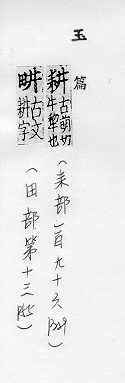 玉篇
耕 古萌切
牛犂也
（耒部一百九十六 ）
畊 古文
耕字
（田部第十三 ）